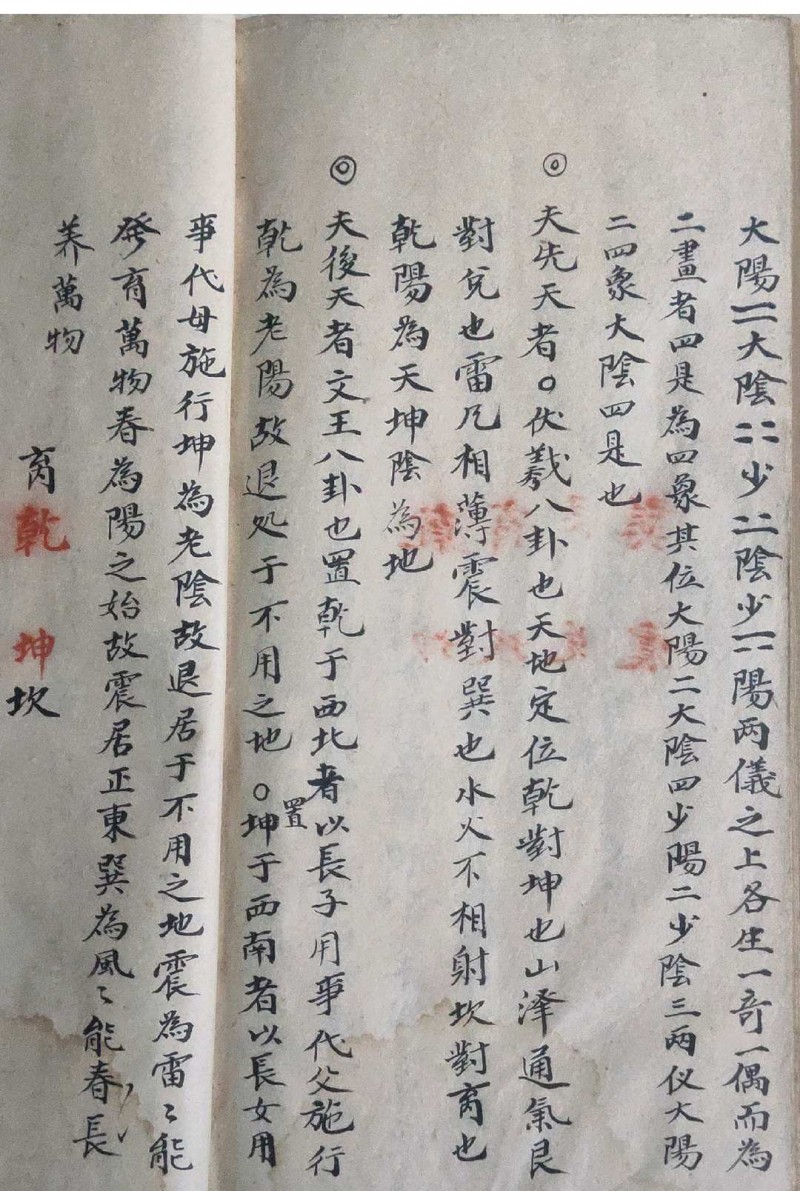 大陽二大陰二二少二陰少一陽两儀之上各生一奇一偶而為
二畫者四是為四象其位大陽二大陰四少陽二少陰三两仪大陽
二四象大陰四是也
◎夫先天者○伏羲八卦也天地定位乾對坤也山泽通氣艮
對兌也雷凡相薄震對巽也水火不相射坎對离也
乾陽為天坤陰為地
◎夫後天者文王八卦也置乾于西北者以長子用事代父施行
乾為老陽故退処于不用之地○置坤于西南者以長女用
事代母施行坤為老陰故退居于不用之地震為雷〻能
發育萬物春為陽之始故震居正東巽為風〻能春長
养萬物
离乾坤坎